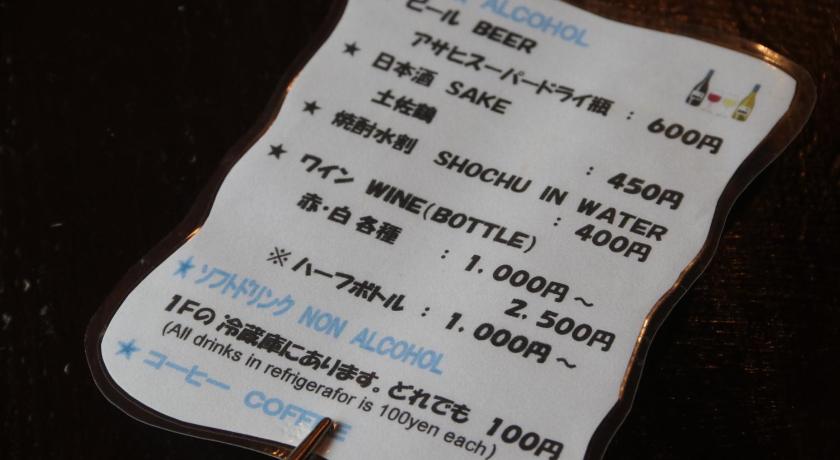 ALCOHOL
ビール BEER
アサヒスーパードライ瓶 : 600円
★ 日本酒 SAKE
土佐鶴 : 450円
★ 焼酎水割 SHOCHU IN WATER
: 400円
★ ワイン WINE(BOTTLE)
赤・白 各種 : 1.000円～
2.500円
※ ハーフボトル : 1.000円～
★ソフトドリンク NON ALCOHOL
1Fの冷蔵庫にあります。どれでも 100円
(All drinks in refrigerafor is 100yen each)
★コーヒー COFFEE